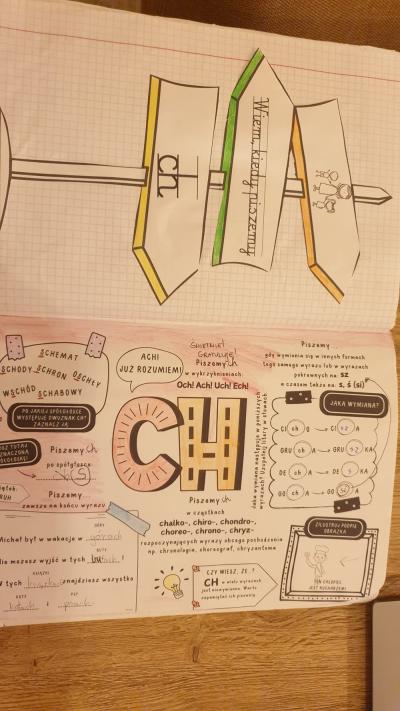 Wiem, kiedy piszemy
ch
SCHEMAT
SCHODY SCHRON OSCHŁY
WSCHÓD SCHABOWY
PO JAKIEJ SPÓŁGŁOSCE
WYSTĘPUJE DWUZNAK CH?
ZAZNACZ JĄ
Piszemy ch
po spółgłosce
S
Piszemy
zawsze na końcu wyrazu
GÓRY
Michał był w wakacje w górach
BUTY
możesz wyjść w tych butach!
KSIĄŻKI
W tych książkach znajdziesz wszystko
ACH!
JUŻ ROZUMIEM!
ŚWIETNIE!
GRATULUJĘ!
Piszemy ch
w wykrzyknieniach:
Och! Ach! Uch! Ech!
CH
Piszemy ch
w cząstkach
chalko-, chiro-, chondro-,
choreo-, chrono-, chryz-
rozpoczynających wyrazy obcego pochodzenia
np. chronologia, choreograf, chryzantema
CZY WIESZ, ŻE..?
CH w wielu wyrazach
jest niewymienne. Warto
zapamiętać ich pisownię.
Piszemy
gdy wymienia się w innych formach
tego samego wyrazu lub w wyrazach
pokrewnych na: sz
a czasem także na: s, ś (si)
Jaka wymiana następuje w poniższych
wyrazach? Uzupełnij litery w słowach.
JAKA WYMIANA?
CI ch A → CI sz A
GRU ch A → GRU sz KA
DE ch A → DE s KA
GO ch A → GO si A
ZILUSTRUJ PODPIS
OBRAZKA
TEN CHŁOPIEC
JEST KUCHARZEM!